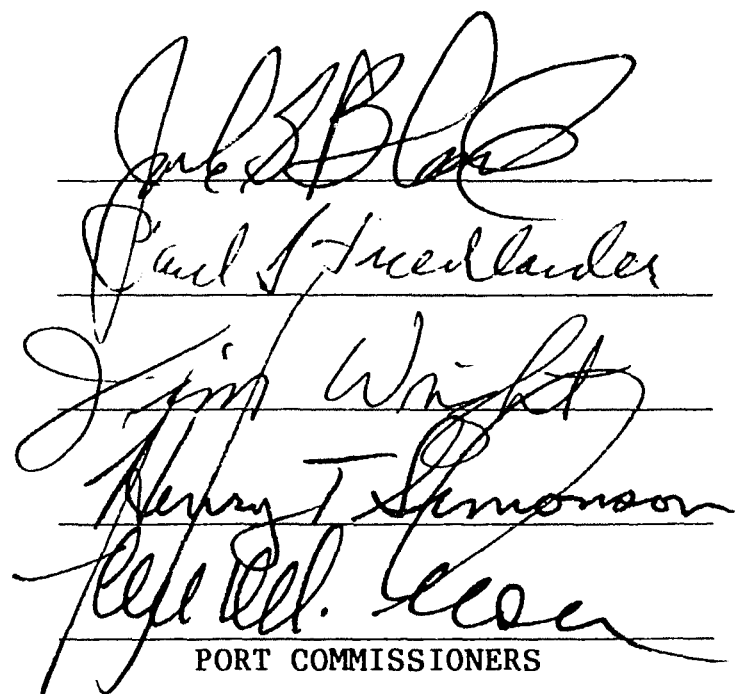 Jack S Block
Paul S Friedlander
Jim Wright
Henry T Simonson
PORT COMMISSIONERS